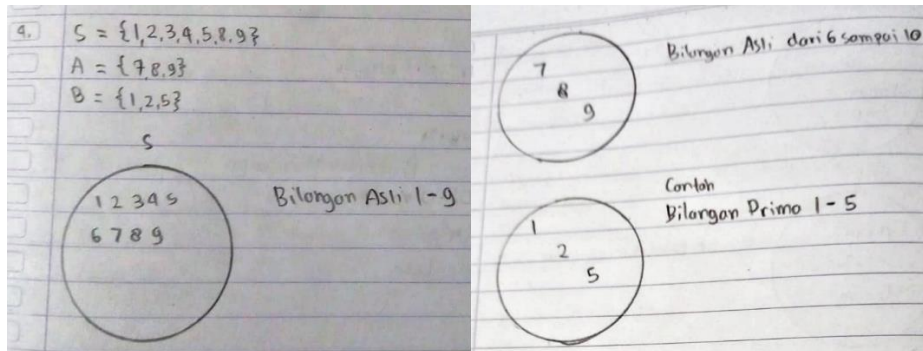 4. S = {1,2,3,4,5,8,9}
A = {7,8,9}
B = {1,2,5}
S
1 2 3 4 5
6 7 8 9
Bilangan Asli 1-9
7
8
9
Bilangan Asli dari 6 sampai 10
Contoh
Bilangan Primo 1-5
1
2
5